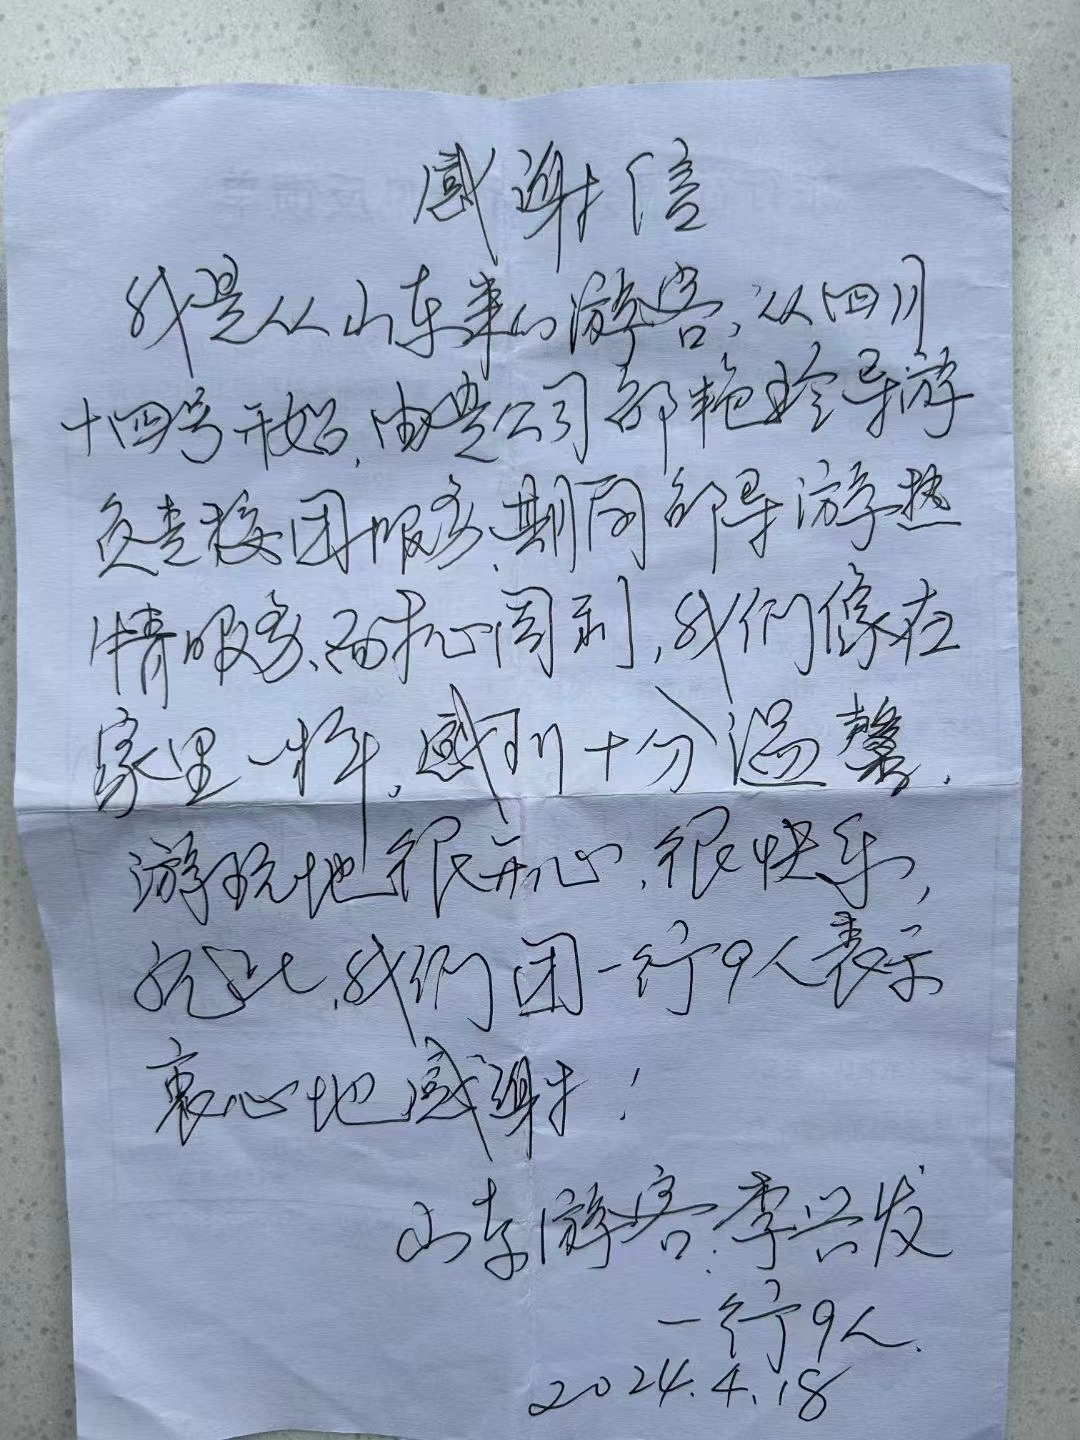 感谢信
我是从山东来的游客,从四川
十四号开始,由贵公司部艳玲导游
负责接团服务,期间部导游热
情服务、面耐心周到,我们像在
家里一样,感到十分温馨.
游玩地很开心,很快乐,
在此,我们团一行9人表示
衷心地感谢!
山东游客:李兴发
一行9人.
2024.4.18